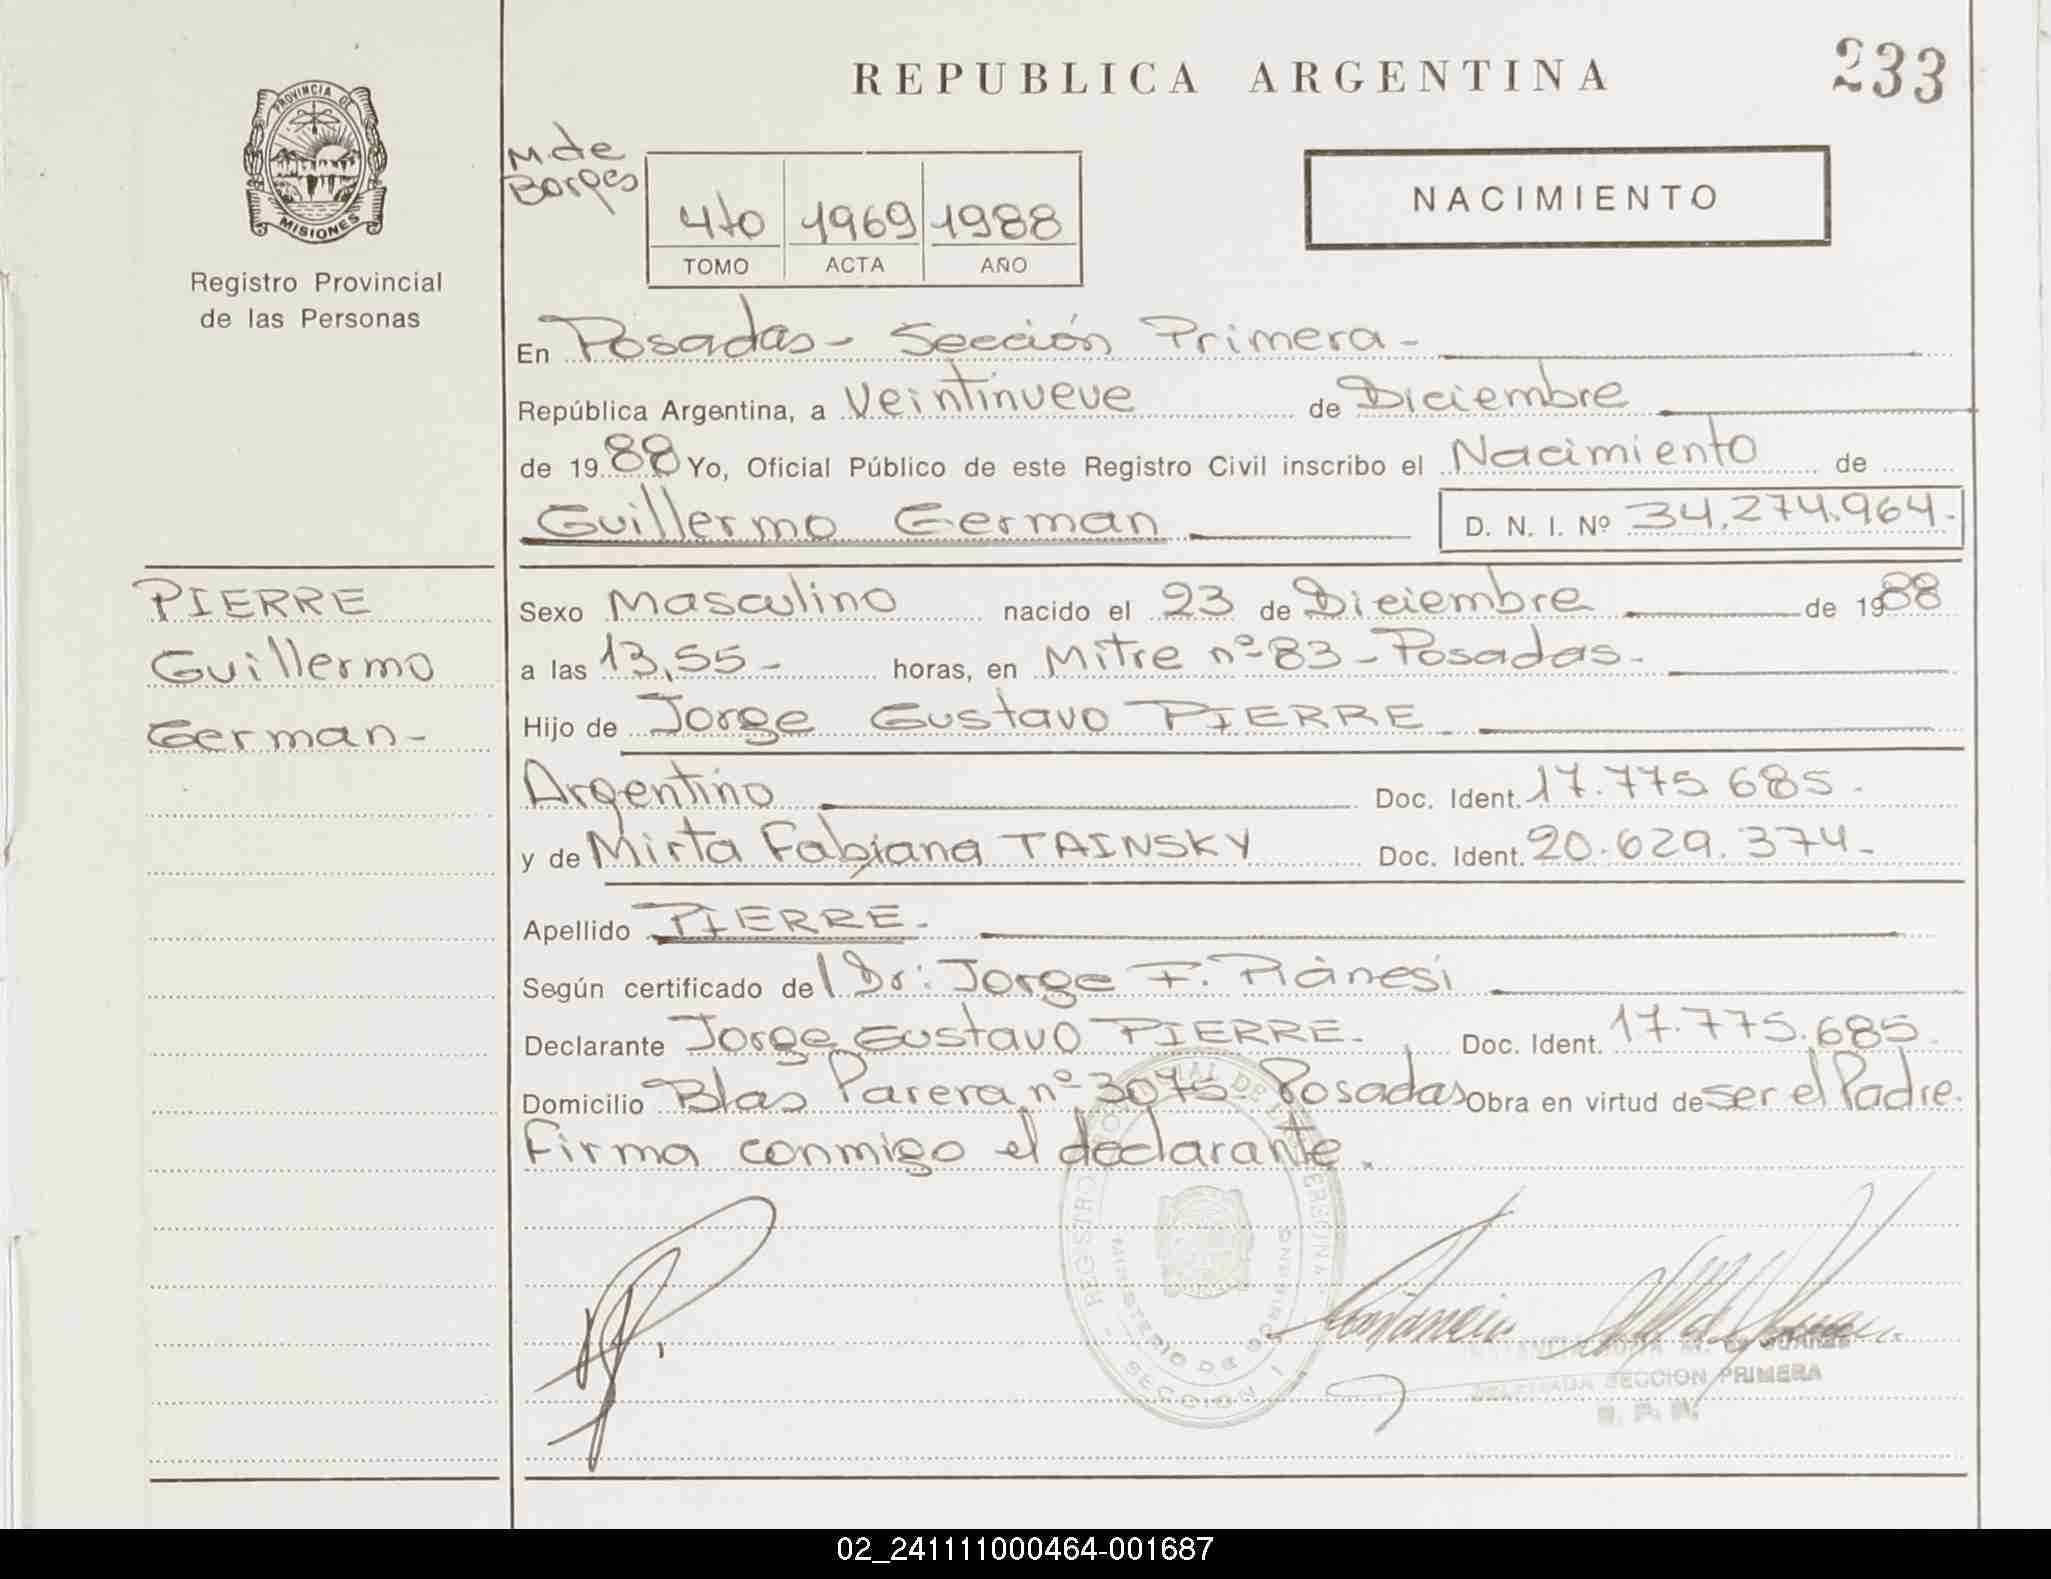 REPUBLICA ARGENTINA
233
PROVINCIA DE
MISIONES
Registro Provincial
de las Personas
M. de
Borges
4to 1969 1988
TOMO ACTA AÑO
NACIMIENTO
En Posadas - Sección Primera -
República Argentina, a Veintinueve de Diciembre
de 1988 Yo, Oficial Público de este Registro Civil inscribo el Nacimiento de
Guillermo German D. N. I. Nº 34.274.964.
PIERRE
Guillermo
German -
Sexo Masculino nacido el 23 de Diciembre de 1988
a las 13,55 - horas, en Mitre nº 83 - Posadas -
Hijo de Jorge Gustavo PIERRE
Argentino Doc. Ident. 17.775.685.
y de Mirta Fabiana TAINSKY Doc. Ident. 20.629.374 -
Apellido PIERRE.
Según certificado del Dr: Jorge F. Piánesi
Declarante Jorge Gustavo PIERRE. Doc. Ident. 17.775.685.
Domicilio Blas Parera nº 3075 - Posadas Obra en virtud de ser el Padre.
Firma conmigo el declarante.
MINISTERIO DE GOBIERNO
SECCION 1
SECCION PRIMERA
02_241111000464-001687